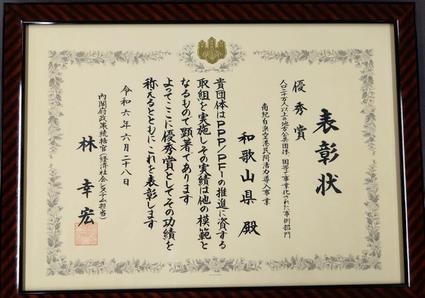 表彰状
優秀賞
人口二十万人以上の地方公共団体・国等で事業化された事例部門
南紀白浜空港民間活力導入事業
和歌山県 殿
貴団体はPPP/PFIの推進に資する
取組を実施しその実績は他の模範と
なるもので顕著であります
よってここに優秀賞としてその功績を
称えるとともにこれを表彰します
令和六年六月二十八日
内閣府政策統括官(経済社会システム担当)
林 幸宏